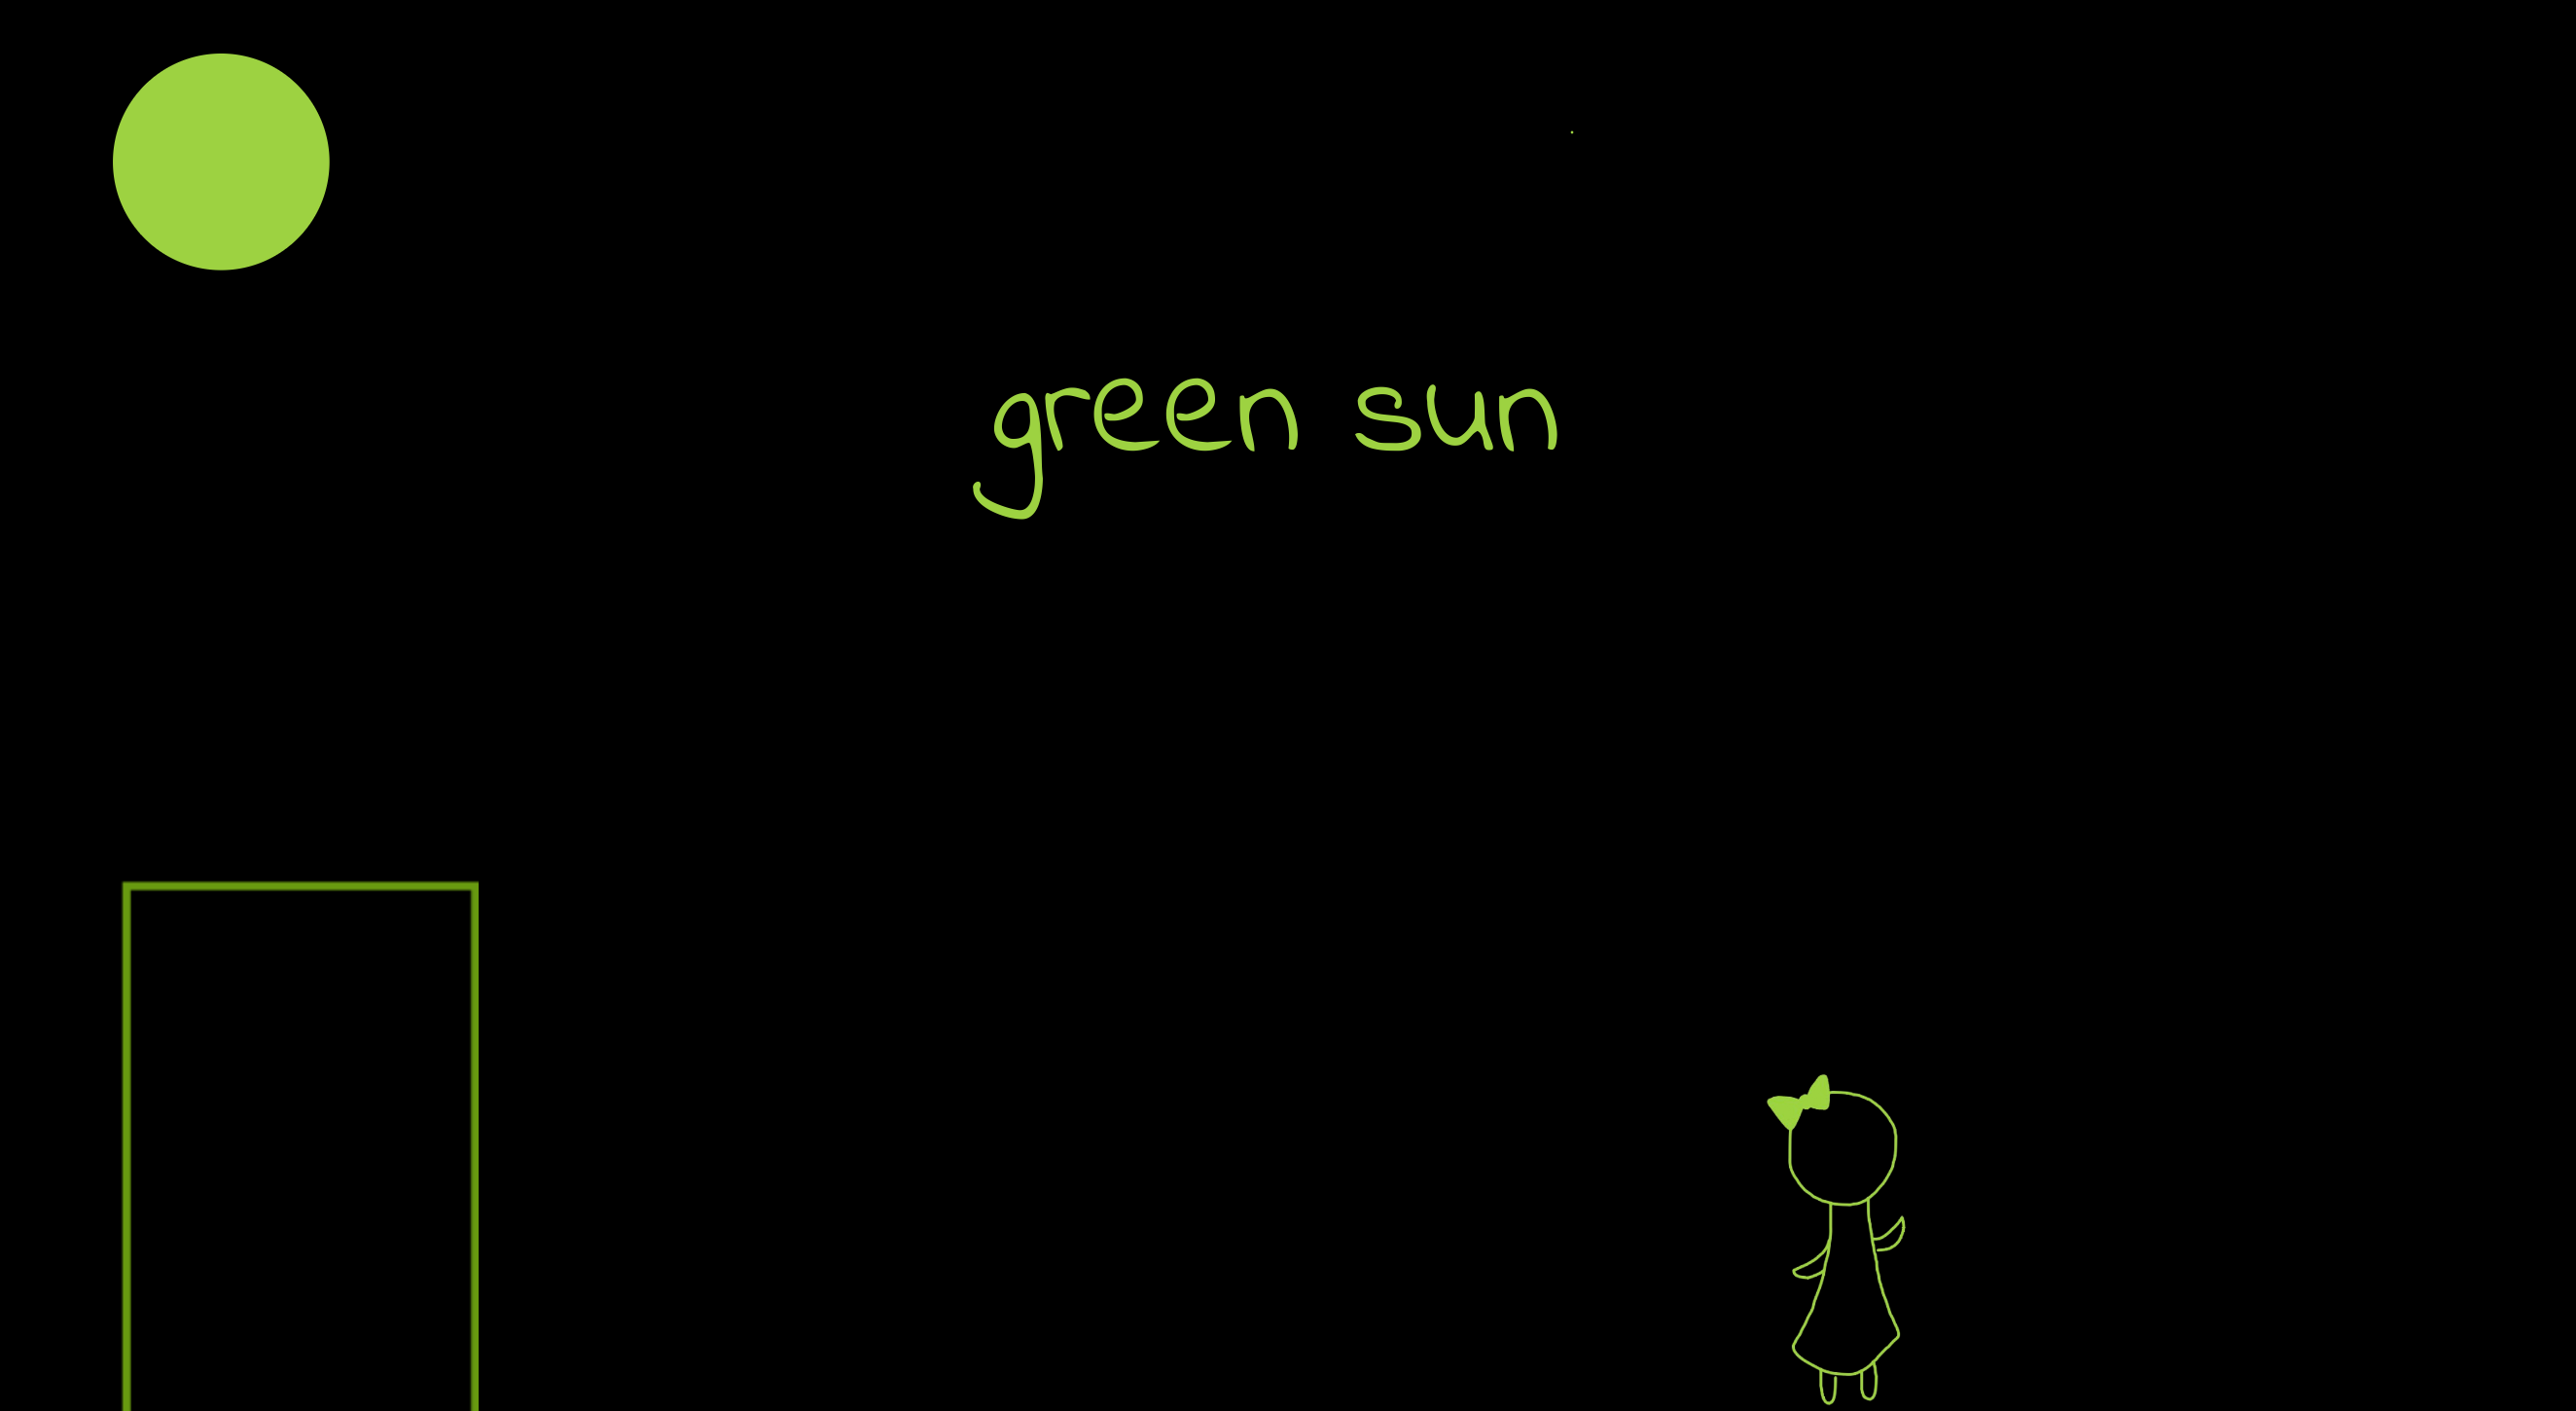 green sun